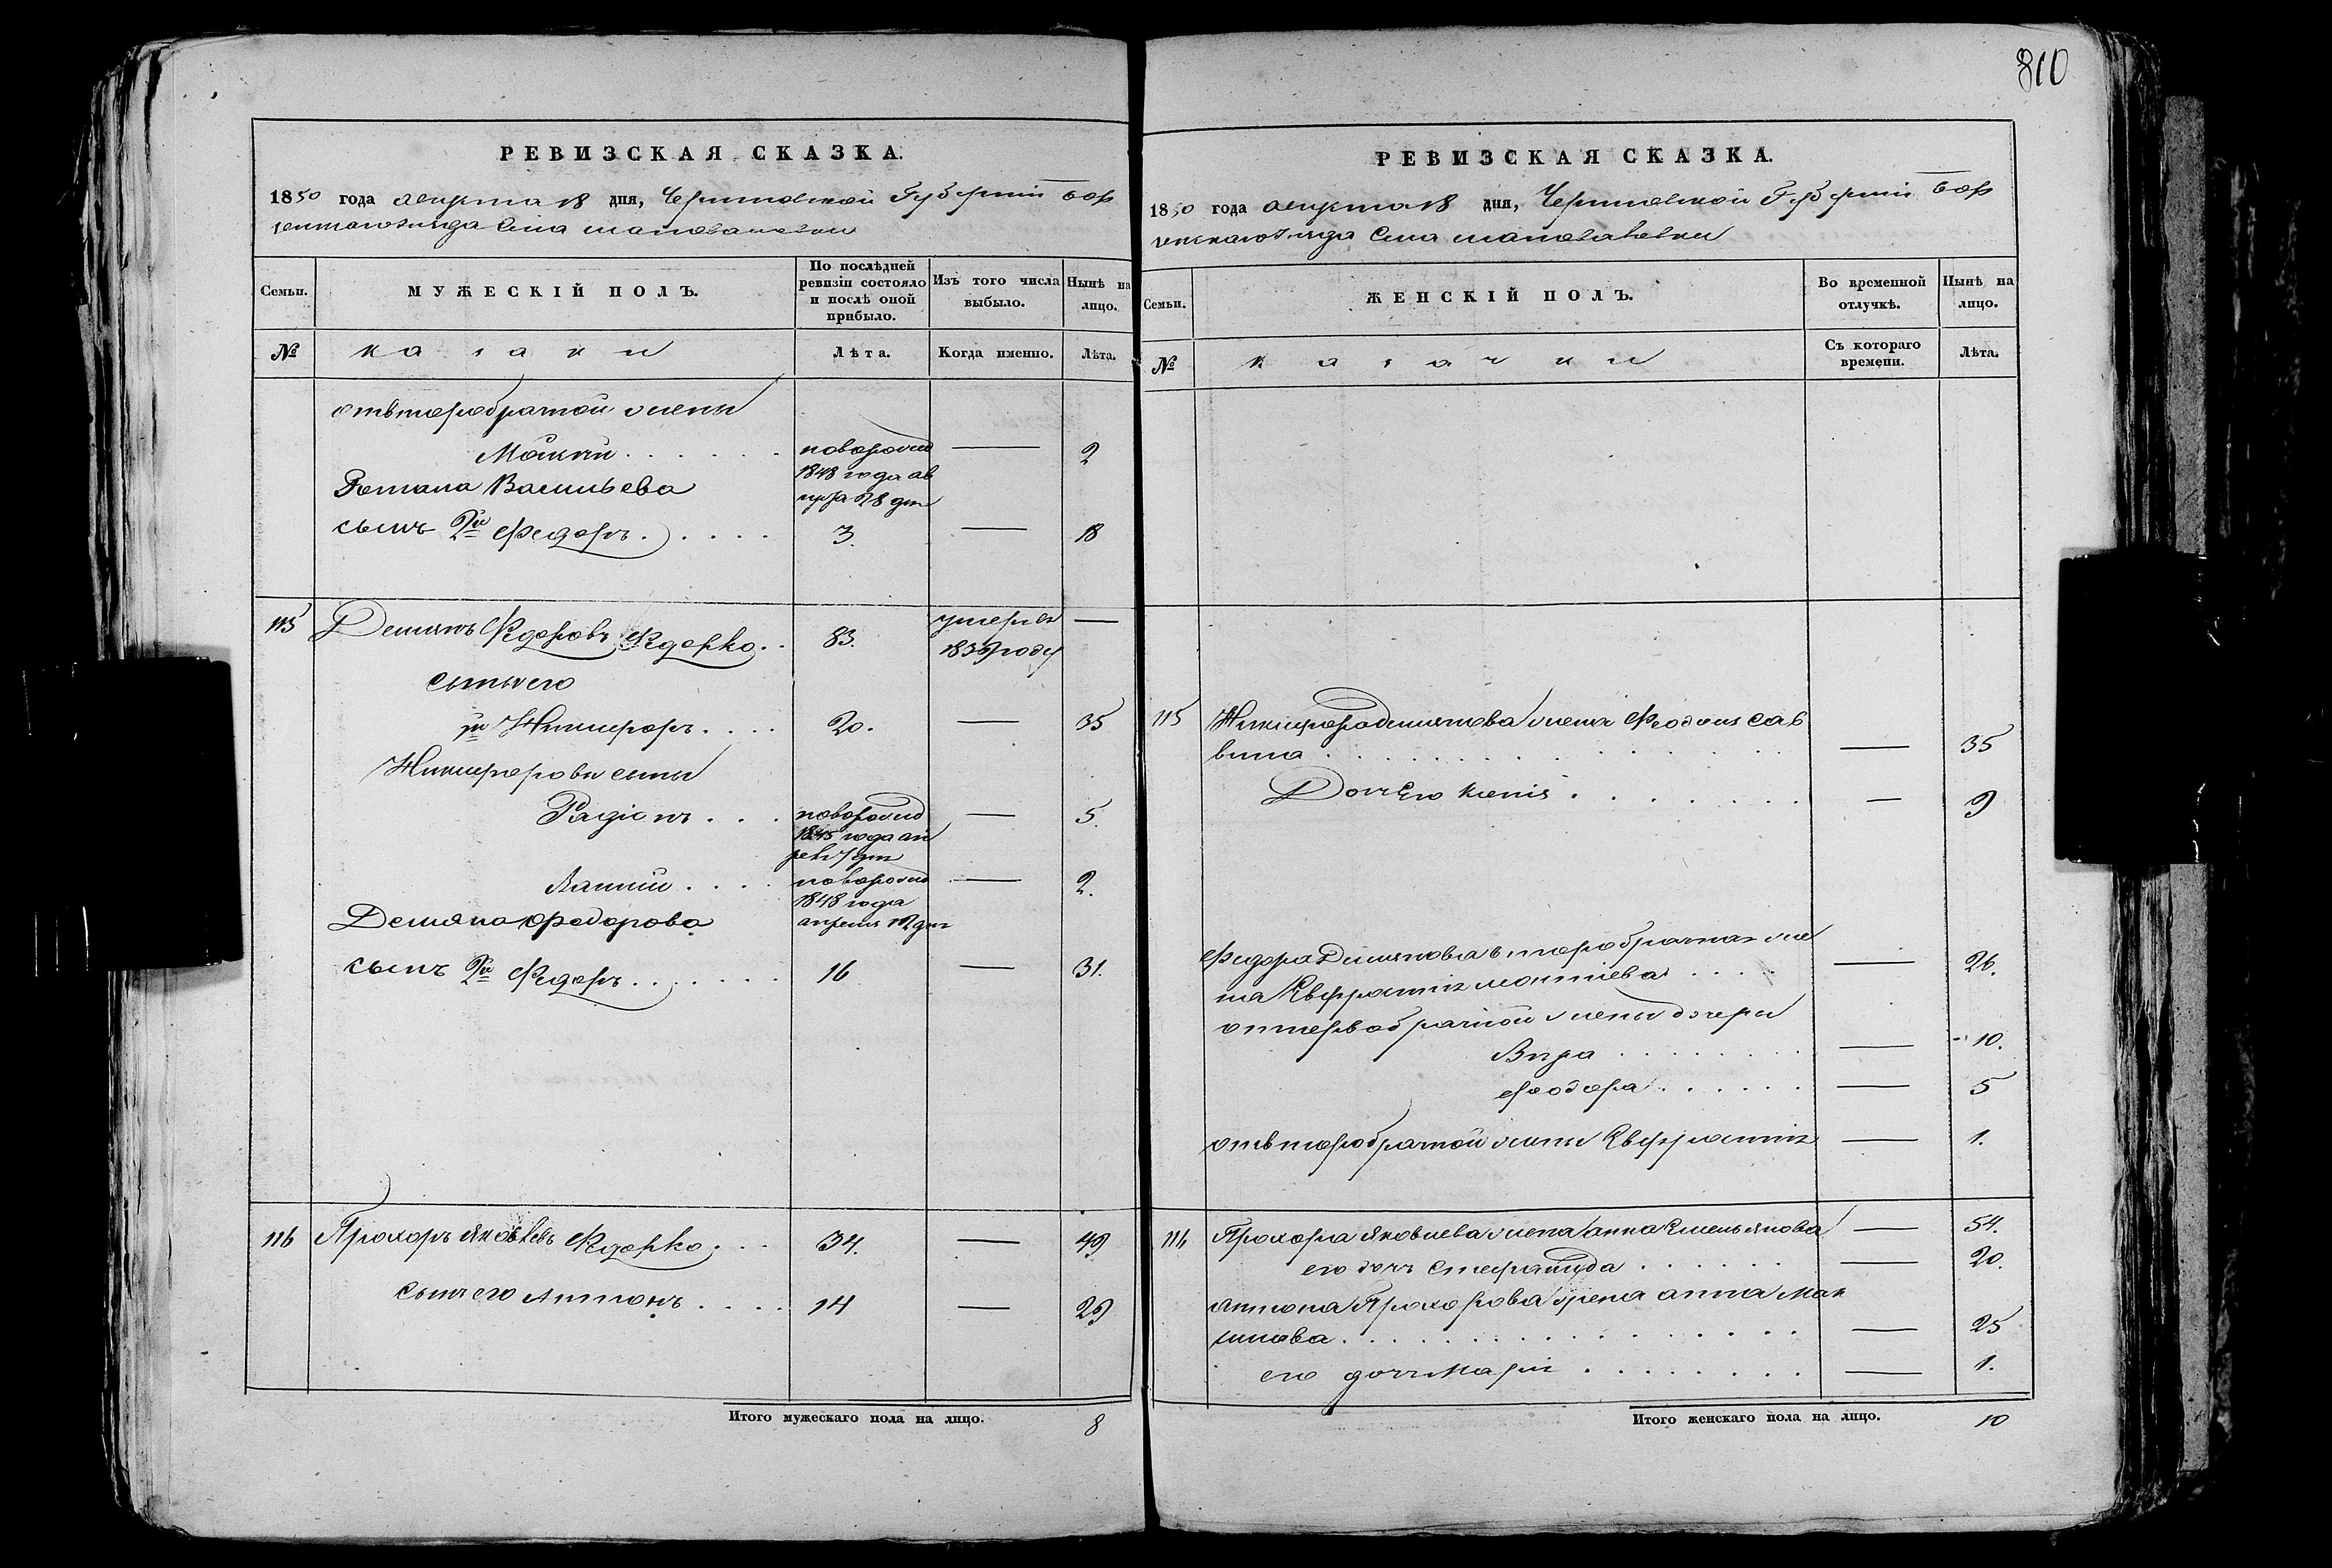 810
РЕВИЗСКАЯ СКАЗКА.
1850 года августа 18 дня, Черниговской Губерніи Бор
зенскаго уезда села шаповаловки
Семьи.
МУЖЕСКІЙ ПОЛЪ.
По послѣдней ревизіи состояло и послѣ оной прибыло.
Изъ того числа выбыло.
Нынѣ на лицо.
№
казаки
Лѣта.
Когда именно.
Лѣта.
отвторобрачной жены
Мойсей . . . новорожд — 2
1848 года ав
Романа Васильева
густа 28 дня
сынъ 2й Федоръ . . . 3. — 18
115 Демянъ Федоровъ Федорко . . 83. умеръ въ —
1839 году
сынъ его
1й Никифоръ . . . 20. — 35
Никифоровы сыны
Радіонъ . . . новорожд — 5.
1845 года ап
реля 7 дня
новорожд — 2.
1848 года
Демяна Федорова
апреля 12 дня
сынъ 2й Федоръ . . . 16 — 31.
116 Прохоръ Яковлевъ Федорко . . . 34. — 49
сынъ его Антонъ . . . 14 — 29
Итого мужескаго пола на лицо. 8
РЕВИЗСКАЯ СКАЗКА.
1850 года августа 18 дня, Черниговской Губерніи Бор
зенскаго уезда села шаповаловки
Семьи.
ЖЕНСКІЙ ПОЛЪ.
Во временной отлучкѣ.
Нынѣ на лицо.
№
казачки
Съ котораго времени.
Лѣта.
115 Никифора демянова жена Феодосия Сав
вина . . . — 35
Дочь Его Ксенія . . . — 9
Федора Демянова второбрачная же
на Евфросинія . . . — 26.
отпервобрачной жены дочери
Вера . . . — 10.
Феодора . . . — 5
отвторобрачной жены Евфросинія — 1.
116 Прохора Яковлева жена анна Емельянова — 54.
его дочь Стефанида . . . — 20.
антона Прохорова жена анна Мак
симова . . . — 25
его дочь Марія . . . — 1.
Итого женскаго пола на лицо. 10